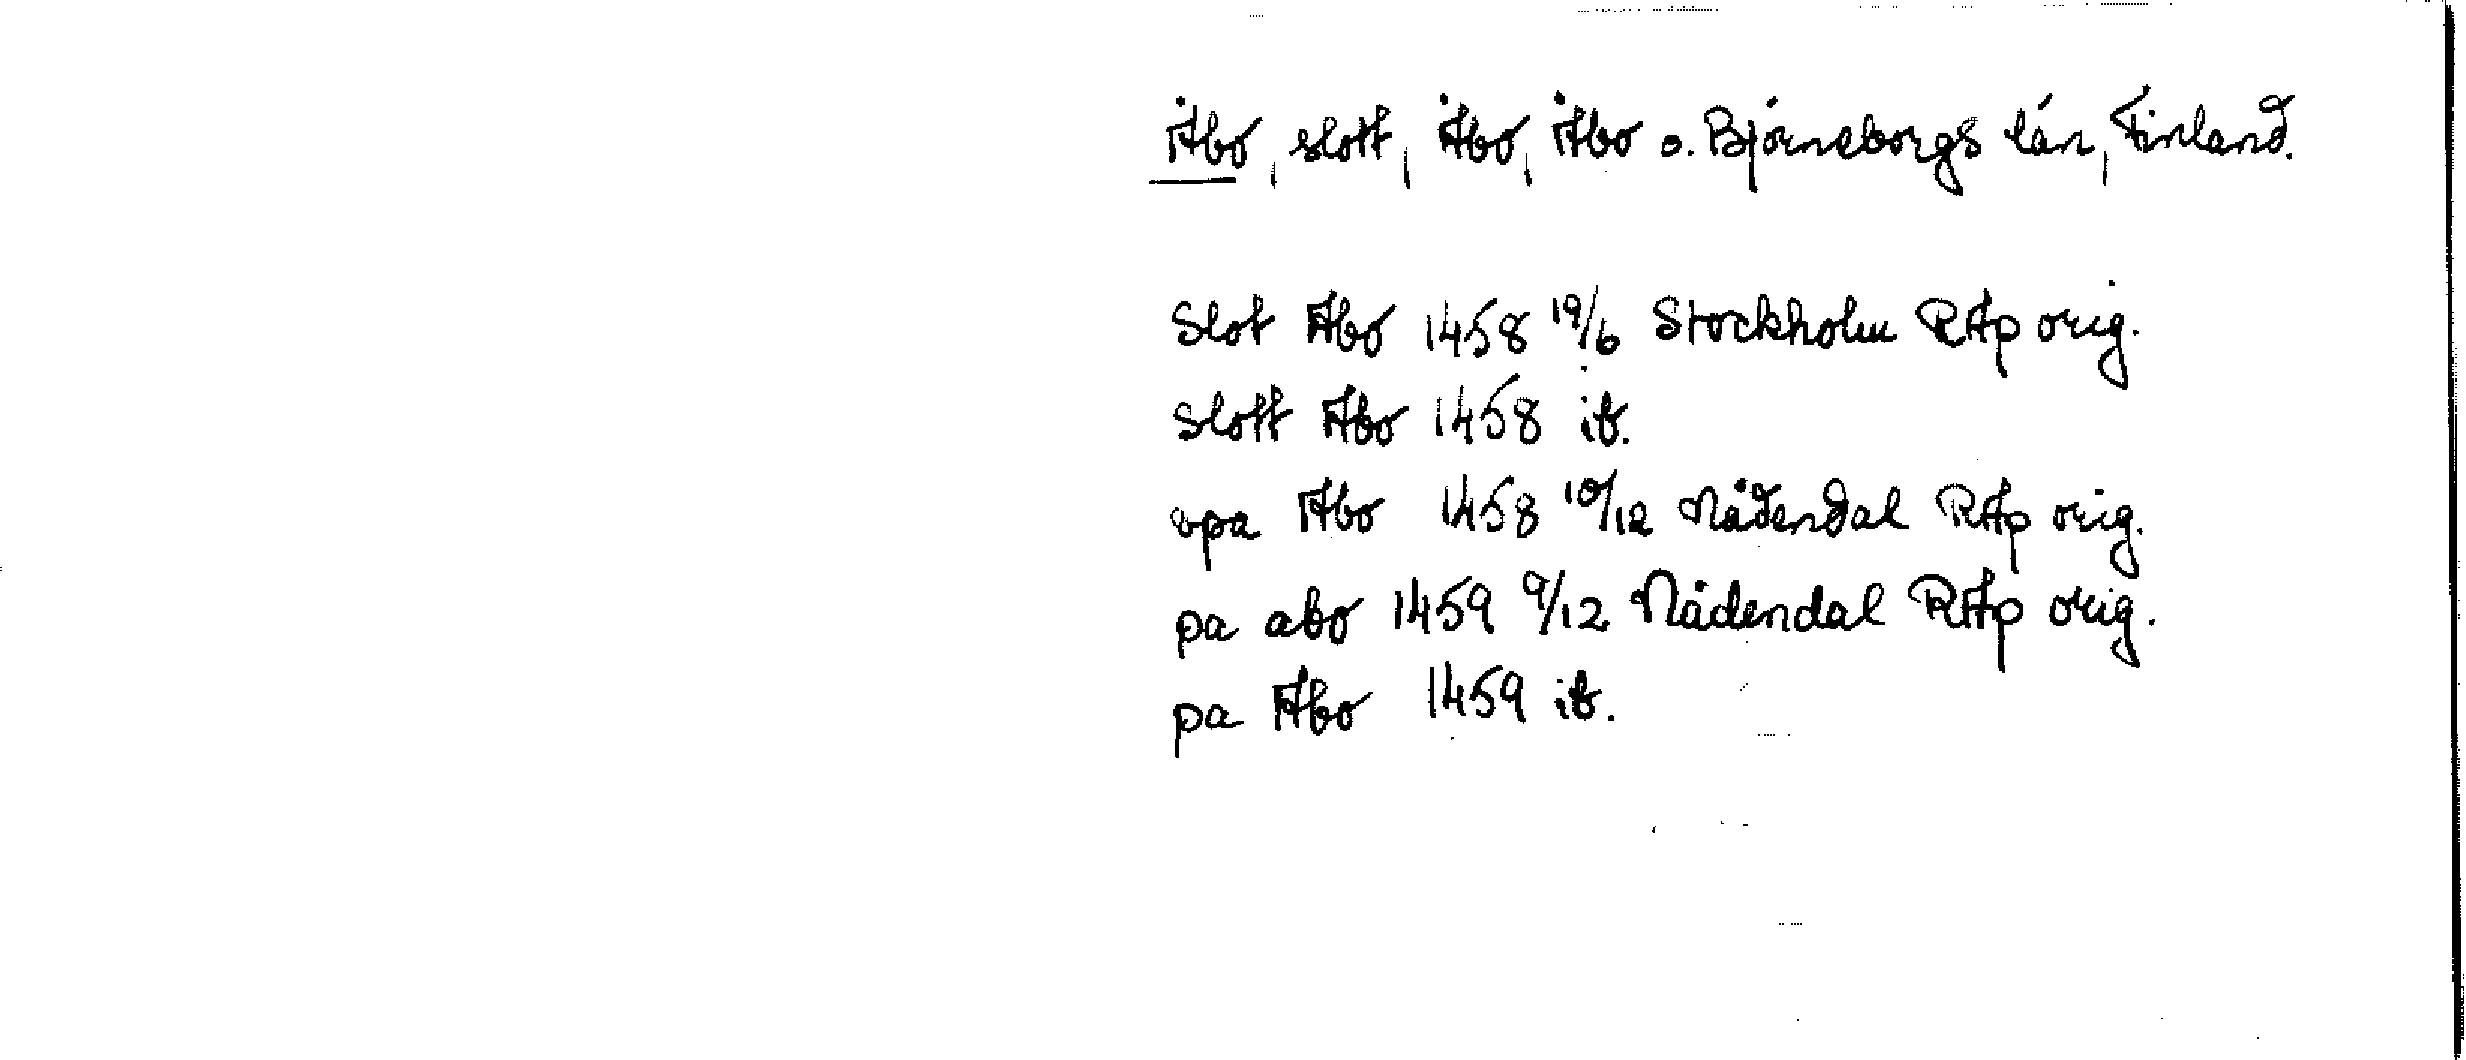 Åbo, slott, Åbo, Åbo o. Björneborgs län, Finland.
Slot Abo 1458 19/6 Stockholm RAp orig.
Slott Abo 1458 ib.
vpa Abo 1458 10/12 Nådendal RAp orig.
pa abo 1459 9/12 Nådendal RAp orig.
pa Abo 1459 ib.